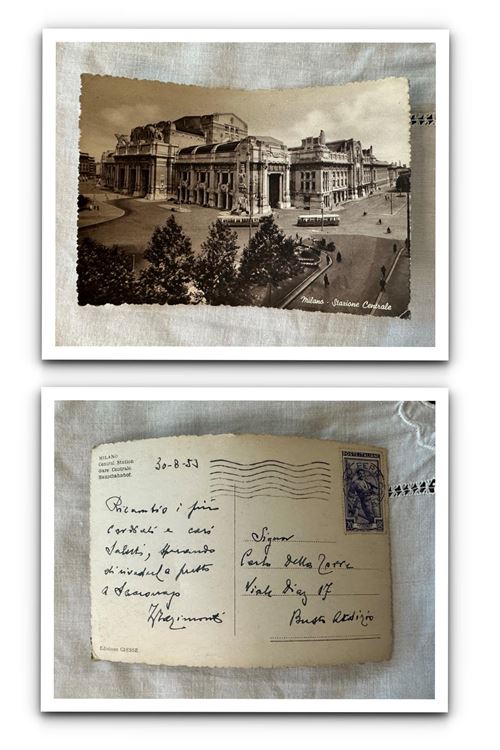 Milano - Stazione Centrale
MILANO
Central Station
Gare Centrale
Hauptbahnhof.
30-8-53
Ricambio i più
cordiali e cari
saluti, sperando
di rivederla presto
a
POSTE ITALIANE
Signor
Carlo Della Torre
Viale Diaz 17
Busto Arsizio
Edizione GIESSE